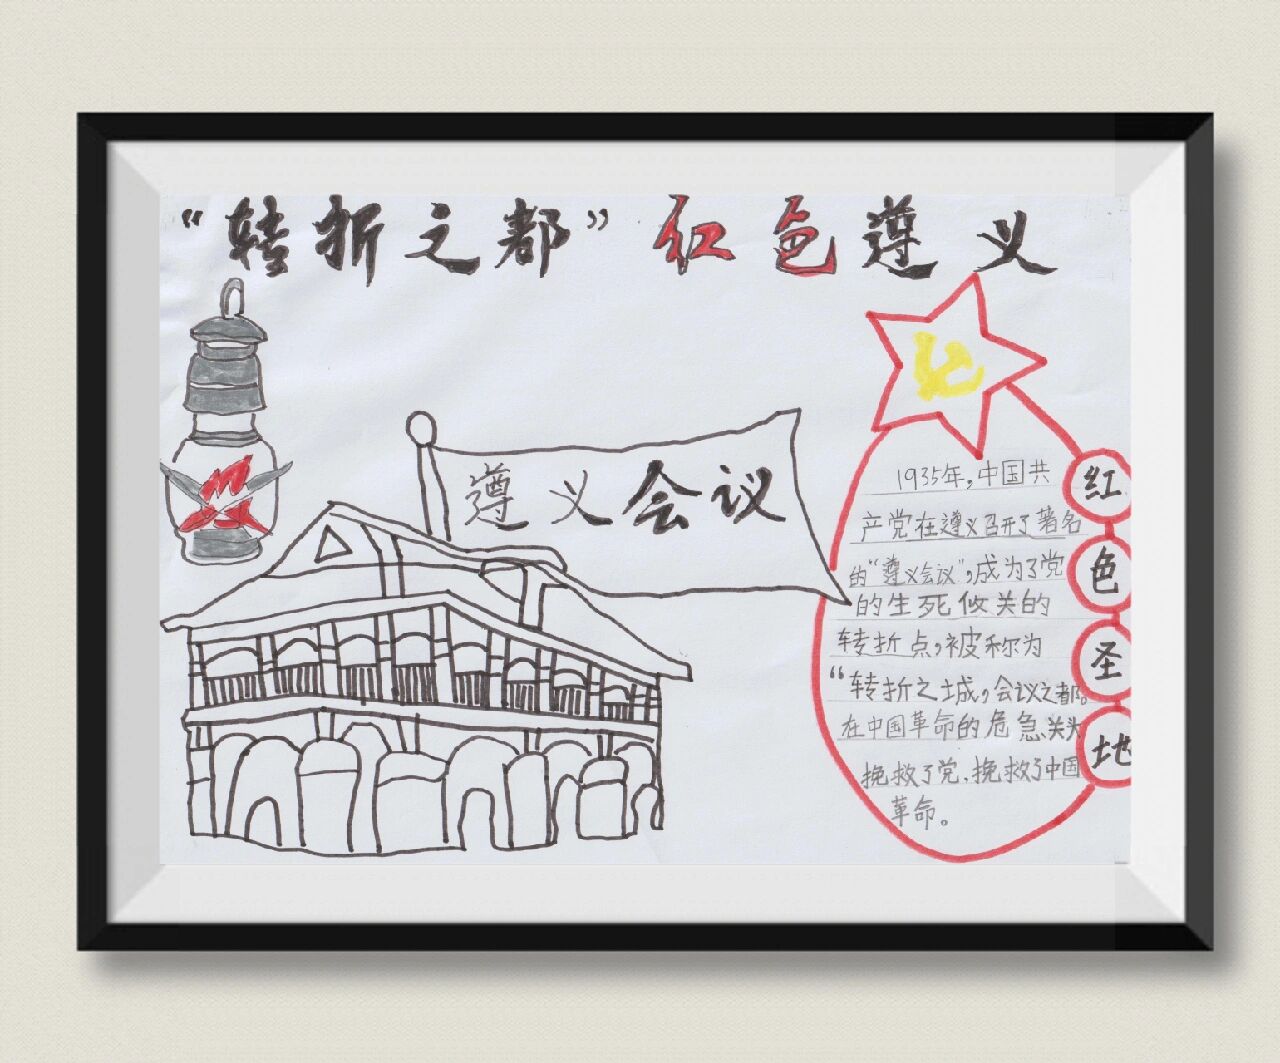 “转折之都”红色遵义
遵义会议
1935年，中国共
产党在遵义召开了著名
的“遵义会议”，成为了党
的生死攸关的
转折点，被称为
“转折之城，会议之都。
在中国革命的危急关头
挽救了党，挽救了中国
革命。
红
色
圣
地